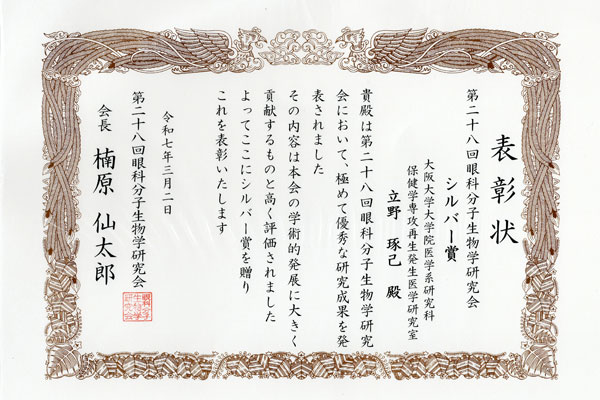 表彰状
第二十八回眼科分子生物学研究会
シルバー賞
大阪大学大学院医学系研究科
保健学専攻再生発生医学研究室
立野 琢己 殿
貴殿は第二十八回眼科分子生物学研究
会において、極めて優秀な研究成果を発
表されました
その内容は本会の学術的発展に大きく
貢献するものと高く評価されました
よってここにシルバー賞を贈り
これを表彰いたします
令和七年三月二日
第二十八回眼科分子生物学研究会
会長 楠原 仙太郎
眼科分子
生物学
研究会